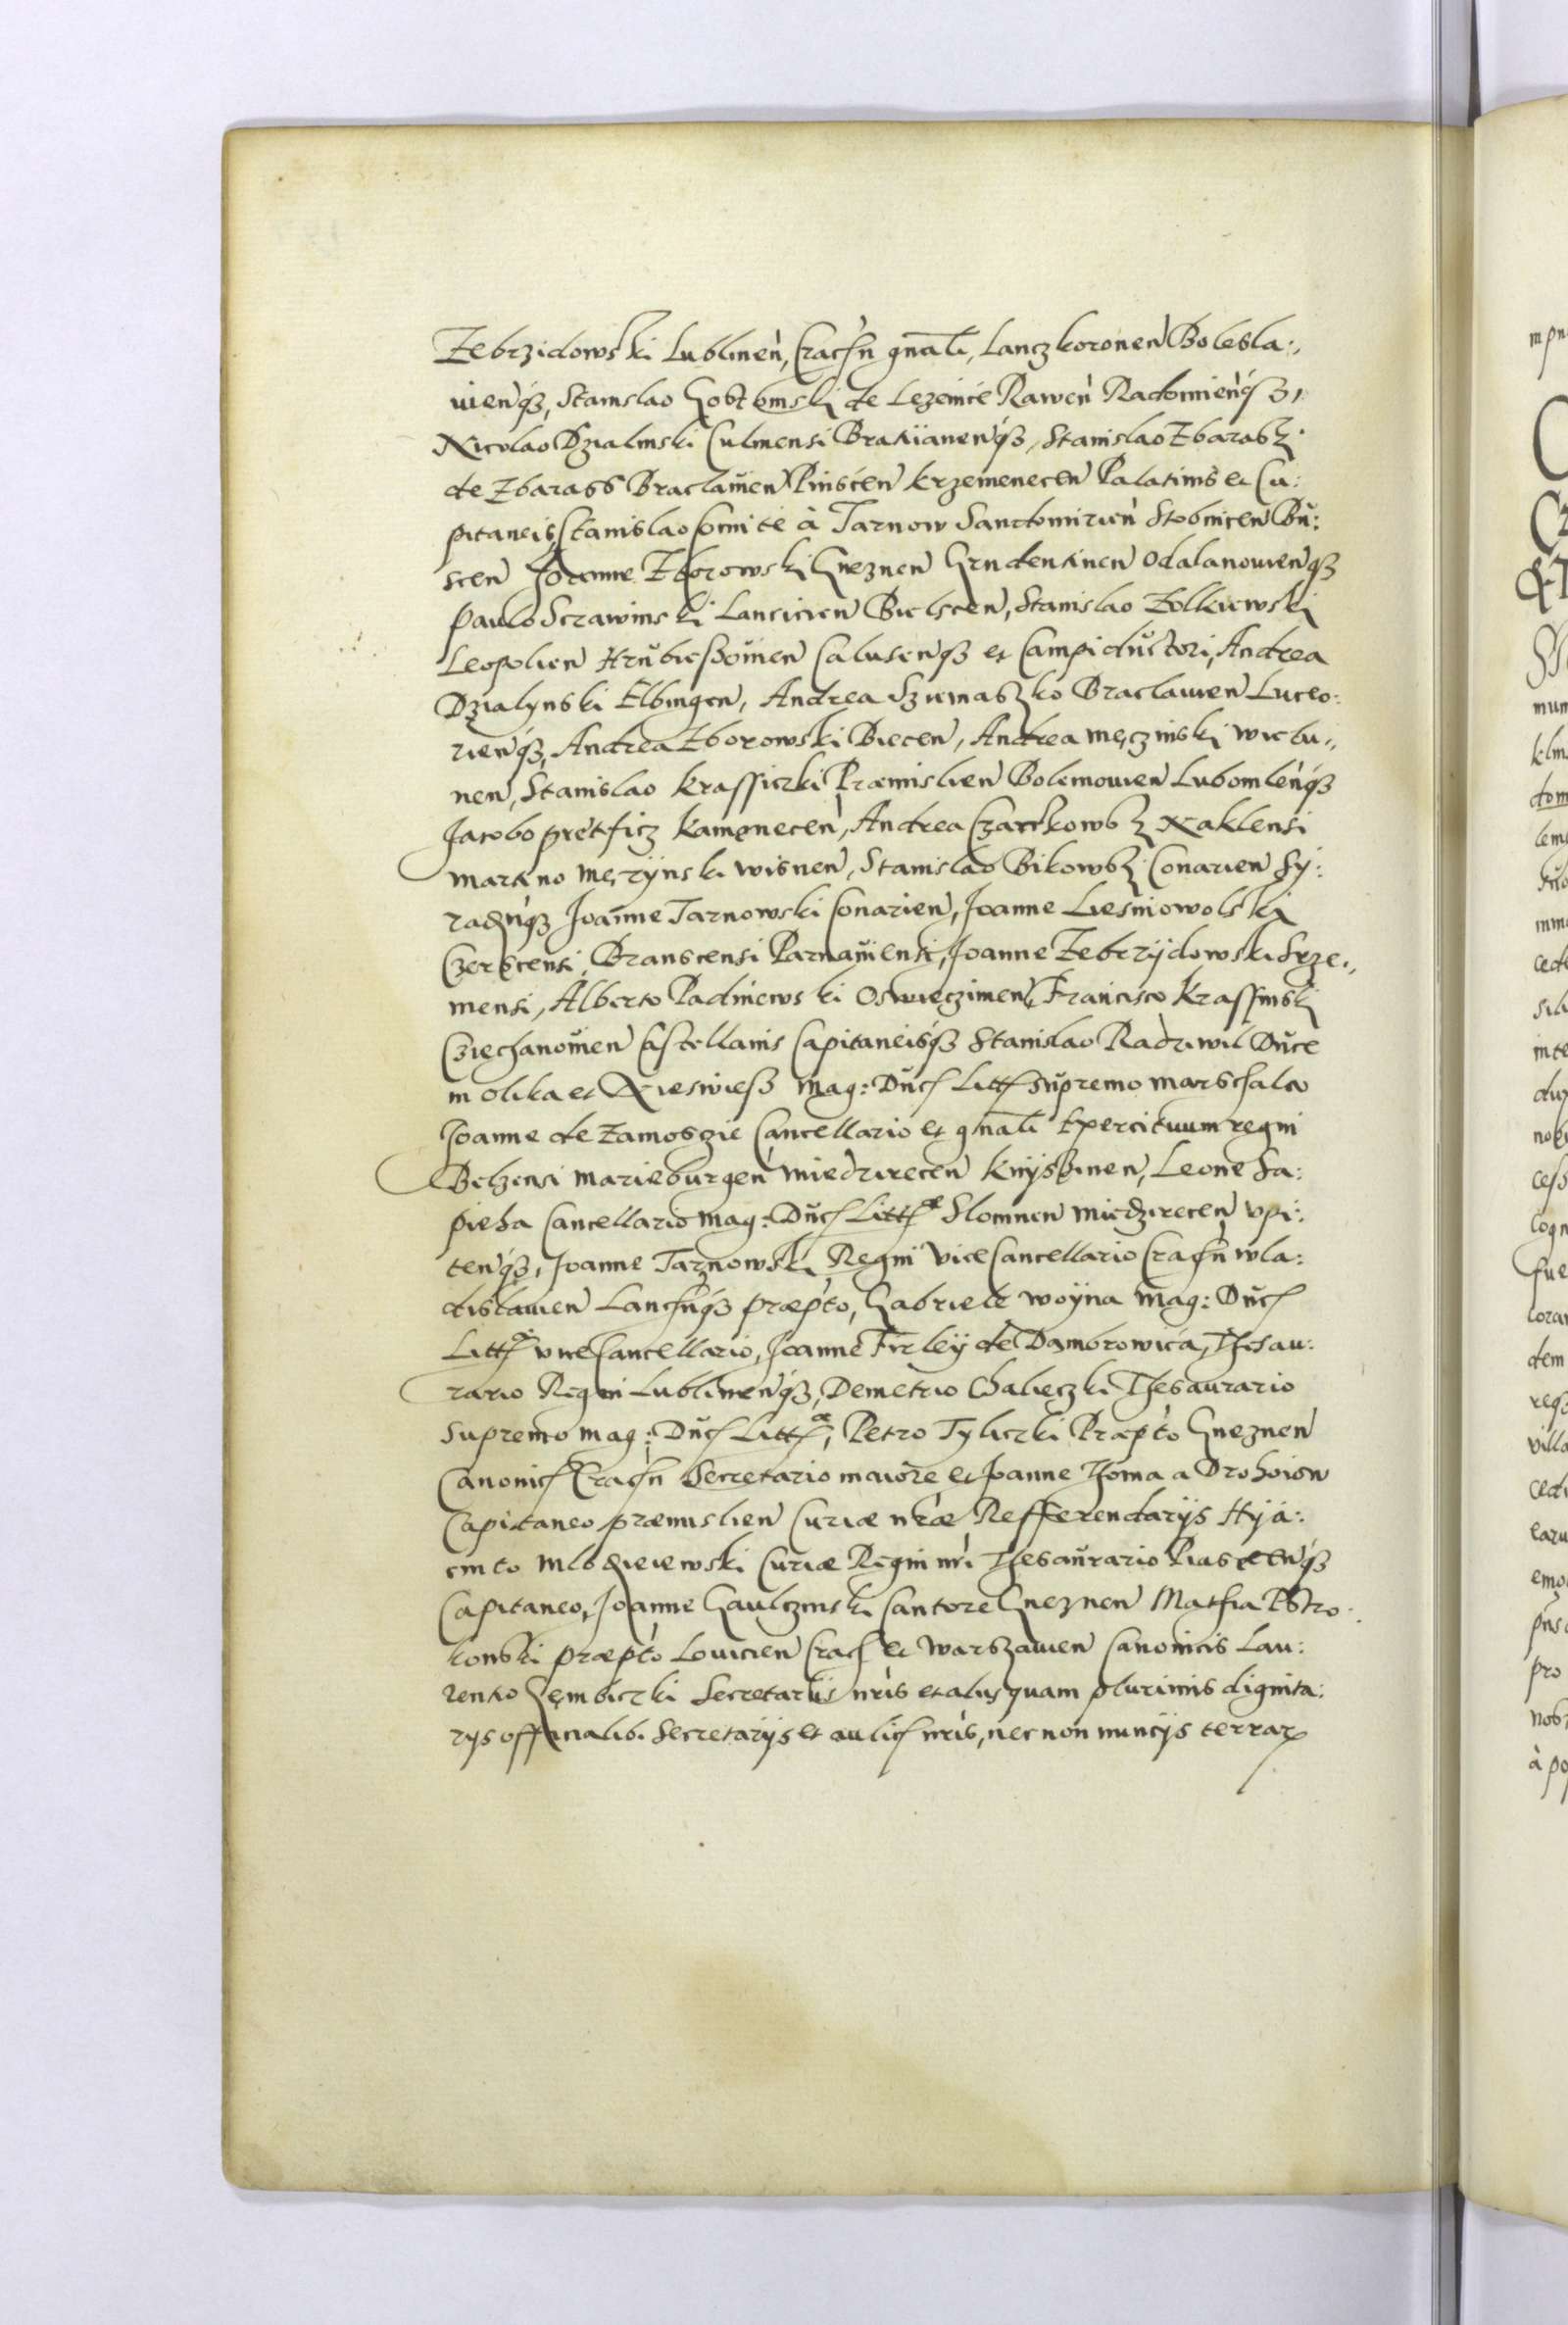 Zebrzidowski Lublineǹ, Cracħn gnāli, Lanczkoronen Bolesla:,
uienq́ꝫ, Stanislao Gostomski de Lezenice Raweǹ Radomienq́ꝫ,
Nicolao Dzialinski Culmensi Bratiianenq́ꝫ, Stanislao Zbarasky
de Zbarass Braclauien Pinscen krzemenecen Palatinis et Ca:
pitaneis, Stanislao Comite à Tarnow Sandomirień Stobnicen Bŭ:
scen Joanne Zborowski Gneznen Grudentinen Odalanouienqꝫ
Paulo Sczawinski Lancicien Bielscen, Stanislao Zolkiewski
Leopolien Hrŭbieszouien Calusenqꝫ et Campiductori, Andrea
Dzialynski Elbingen, Andrea Szuınasko Braclauien Luceo:
rienq́ꝫ, Andrea Zborowski Biecen, Andrea męczinski wielu:,
nen, Stanislao Krassiczki Præmislien Bolemouien Lubomlenq́ꝫ
Jacobo pretficz Kameneceń, Andrea Czarnkowsky Naklensi
martino męzÿnski wisnen, Stanislao Bikowsky Conarien Sy:
radn̄qꝫ Joanne Tarnowski Conarien, Joanne Liesniowolski
Czerscensi Branscensi Parnaŭiensi, Joanne Zebrzÿdowski Srze:,
mensi, Alberto Padniewski Oswieczimen, Francisco Krassinski
Cziechanouien Castellanis Capitaneisq́ꝫ Stanislao Radziwil Dŭce
in olika et Nieswiesz mag: Dŭcħ Littħ supremo marschalco
Joanne de Zamoszie Cancellario et gnāli Exercituum regni
Belzensi marieburgeń miedzirecen knÿskinen, Leone Sa:
pieha Cancellario mag: Dŭcħ Littħæ Slomnen miedzirecen vpi:
tenq́ꝫ, Joanne Tarnowski Regni Vice Cancellario Cracħn wla:
dislauien Lancħnq́ꝫ præpto, Gabriele woÿna mag: Dŭcħ
Littħæ vice Cancellario, Joanne Firleÿ de Dąmbrowica, Thesau:
rario Regni Lublinenq́ꝫ, Demetrio Chaleczki Thesaurario
supremo mag: Dŭcħ Littħæ, Petro Tyliczki Præpto Gneznen
Canonicħ Cracħn Secretario maiore et Joanne Thoma a Drohoiow
Capitaneo præmislien Curiæ nr̃æ Refferendarijs Hya:
cinto mlodzieiewski Curiæ Regni nr̃i Thesaŭrario Piasecenq́ꝫ
Capitaneo, Joanne Gaulczinski Cantore Gneznen Mathia Pstro:
konski præpto Louicien Crach et warszauien Canonicis Lau:
rentio Gembiczki Secretarijs nr̃is et alijs quam plurimis dignita:
rijs officialib. Secretarijs et aulicħ nr̃is, nec non nuncijs terraꝝ